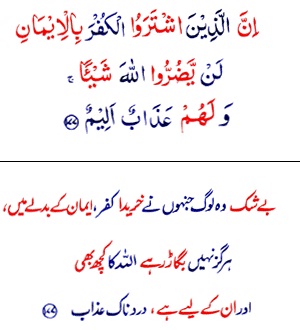 اِنَّ الَّذِيْنَ اشْتَرَوُا الْكُفْرَ بِالْاِيْمَانِ
لَنْ يَّضُرُّوا اللهَ شَيْئًا ۚ
وَلَهُمْ عَذَابٌ اَلِيْمٌ ﴿۱۷۷﴾
بے شک وہ لوگ جنہوں نے خریدا کفر، ایمان کے بدلے میں،
ہرگز نہیں بگاڑ رہے اللہ کا کچھ بھی
اور ان کے لیے ہے، دردناک عذاب ﴿۱۷۷﴾